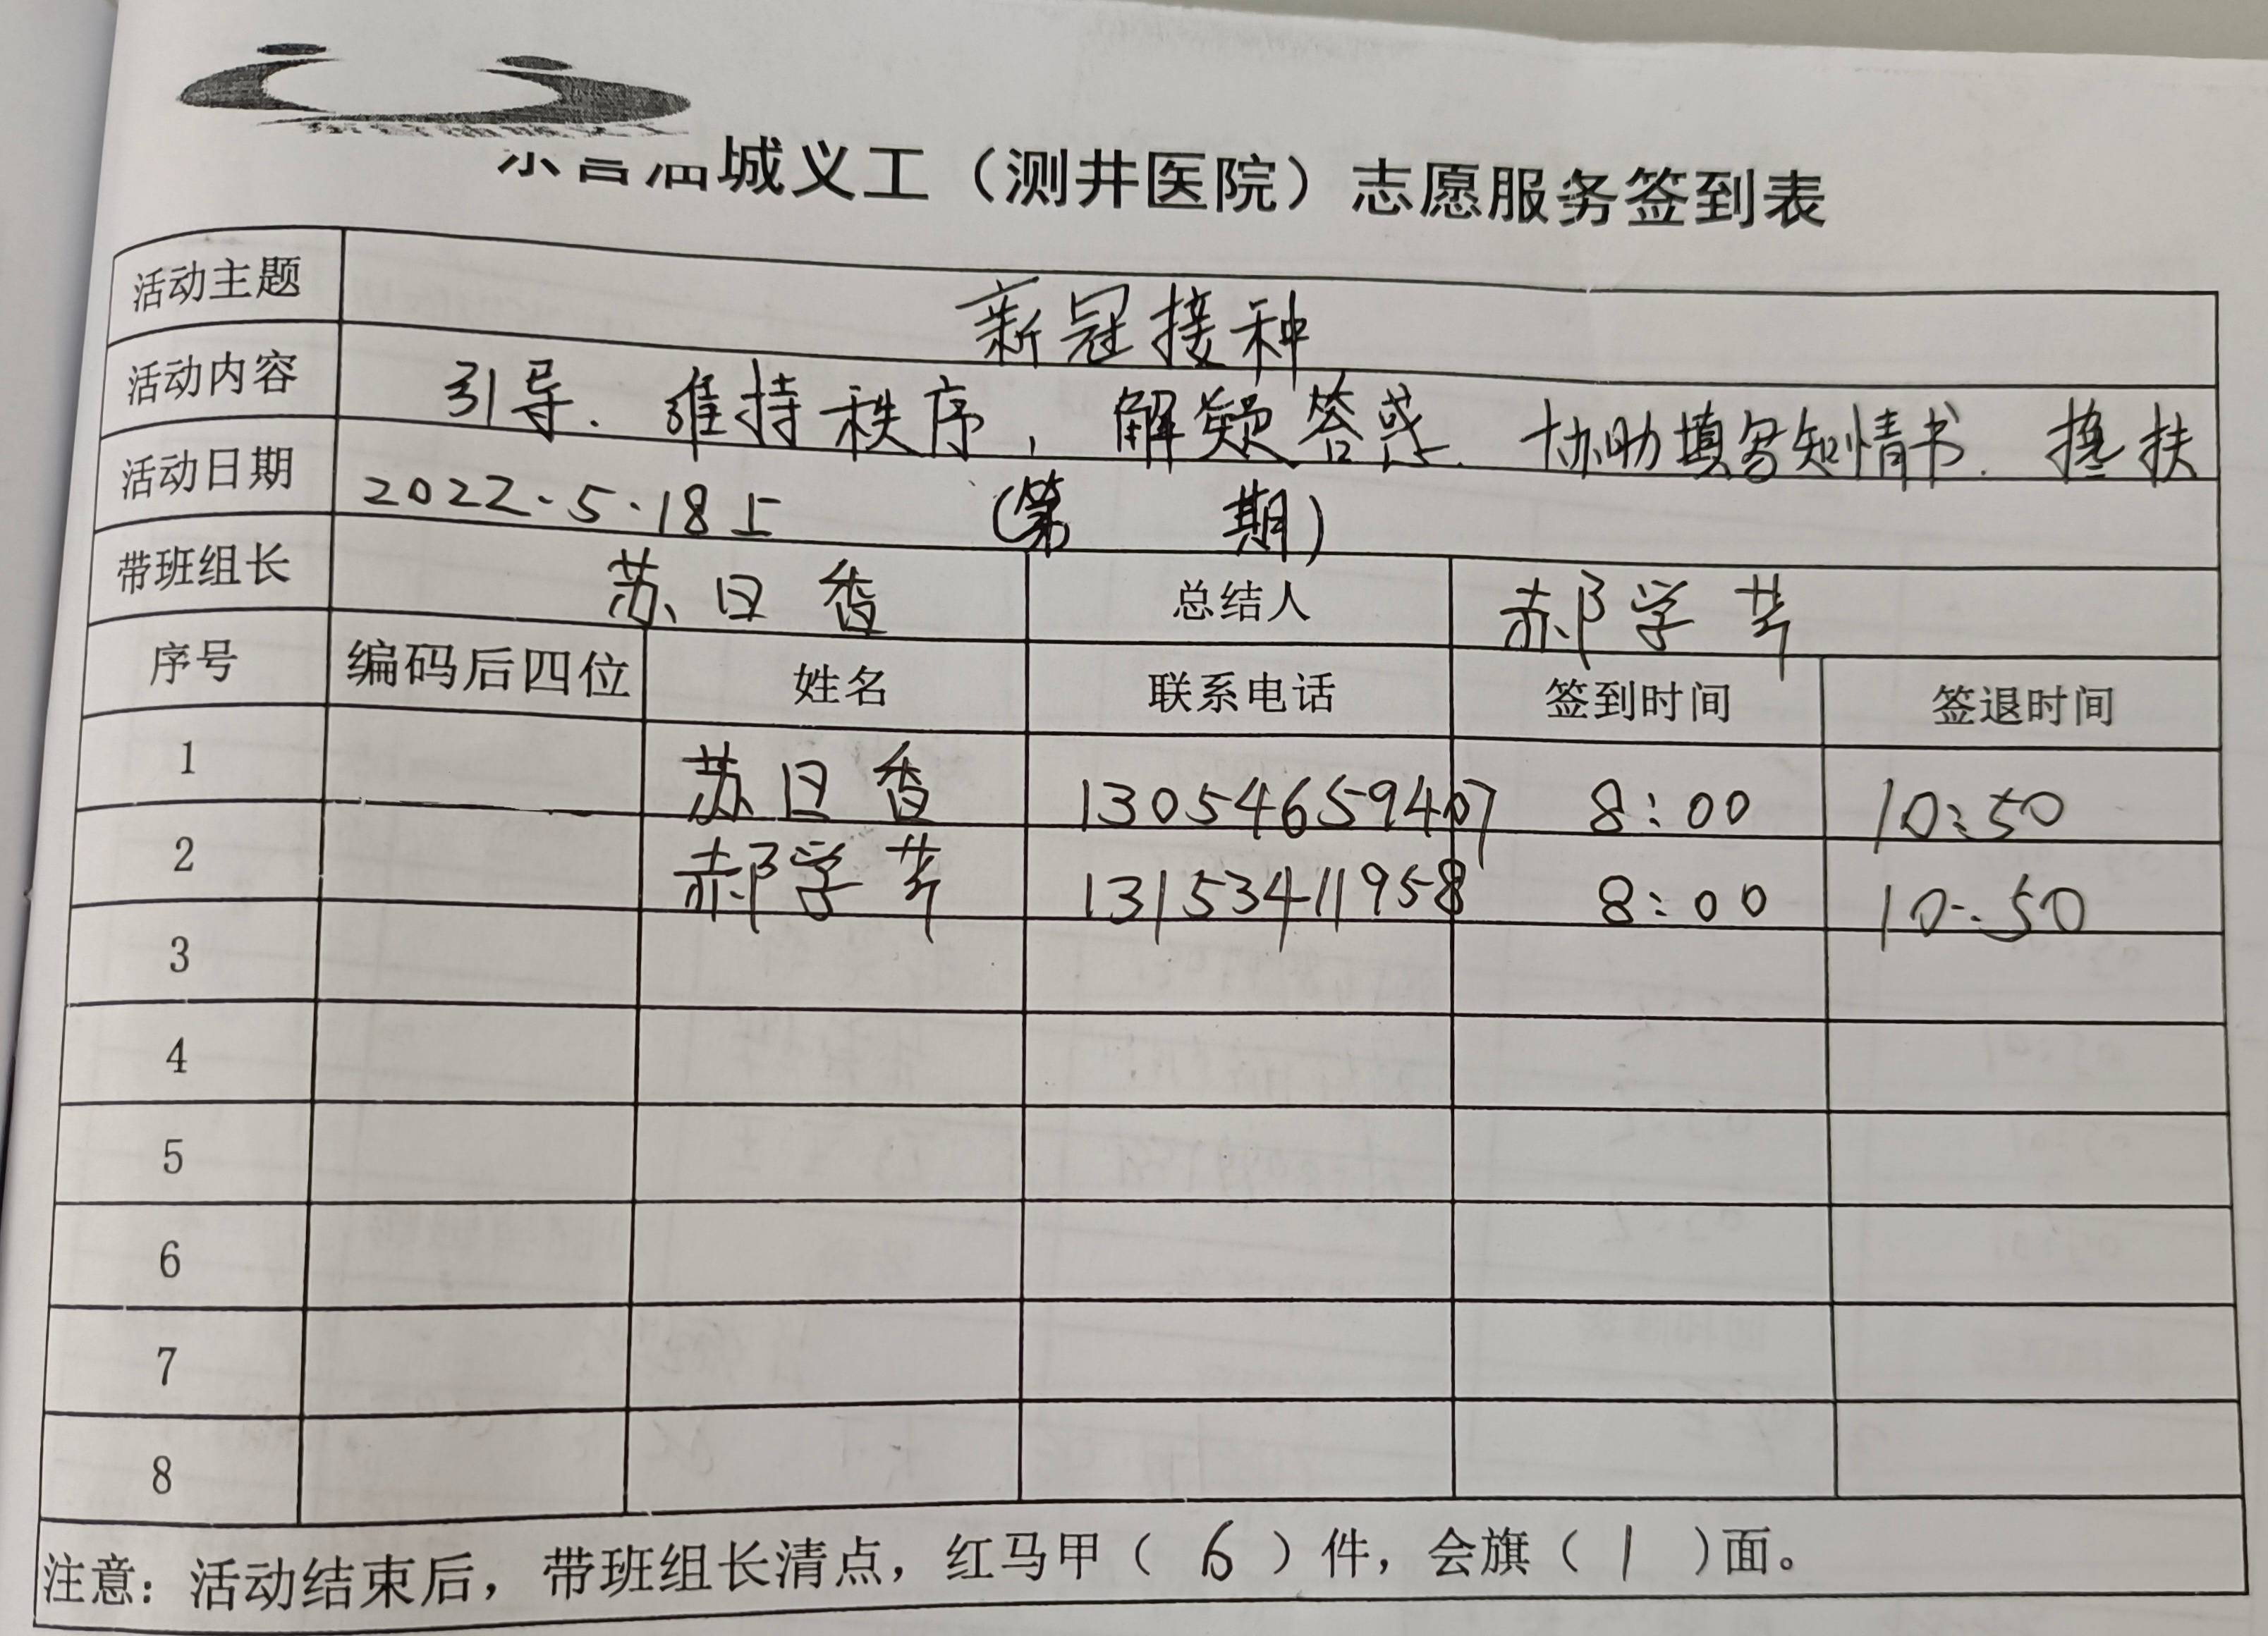 城义工（测井医院）志愿服务签到表
活动主题 新冠接种
活动内容 引导. 维持秩序, 解疑答惑. 协助填写知情书. 搀扶
活动日期 2022.5.18上 (第 期)
带班组长 苏日香 总结人 郝学芹
序号 编码后四位 姓名 联系电话 签到时间 签退时间
1 苏日香 13054659407 8:00 10:50
2 郝学芹 13153411958 8:00 10:50
3
4
5
6
7
8
注意：活动结束后，带班组长清点，红马甲（ 6 ）件，会旗（ 1 ）面。